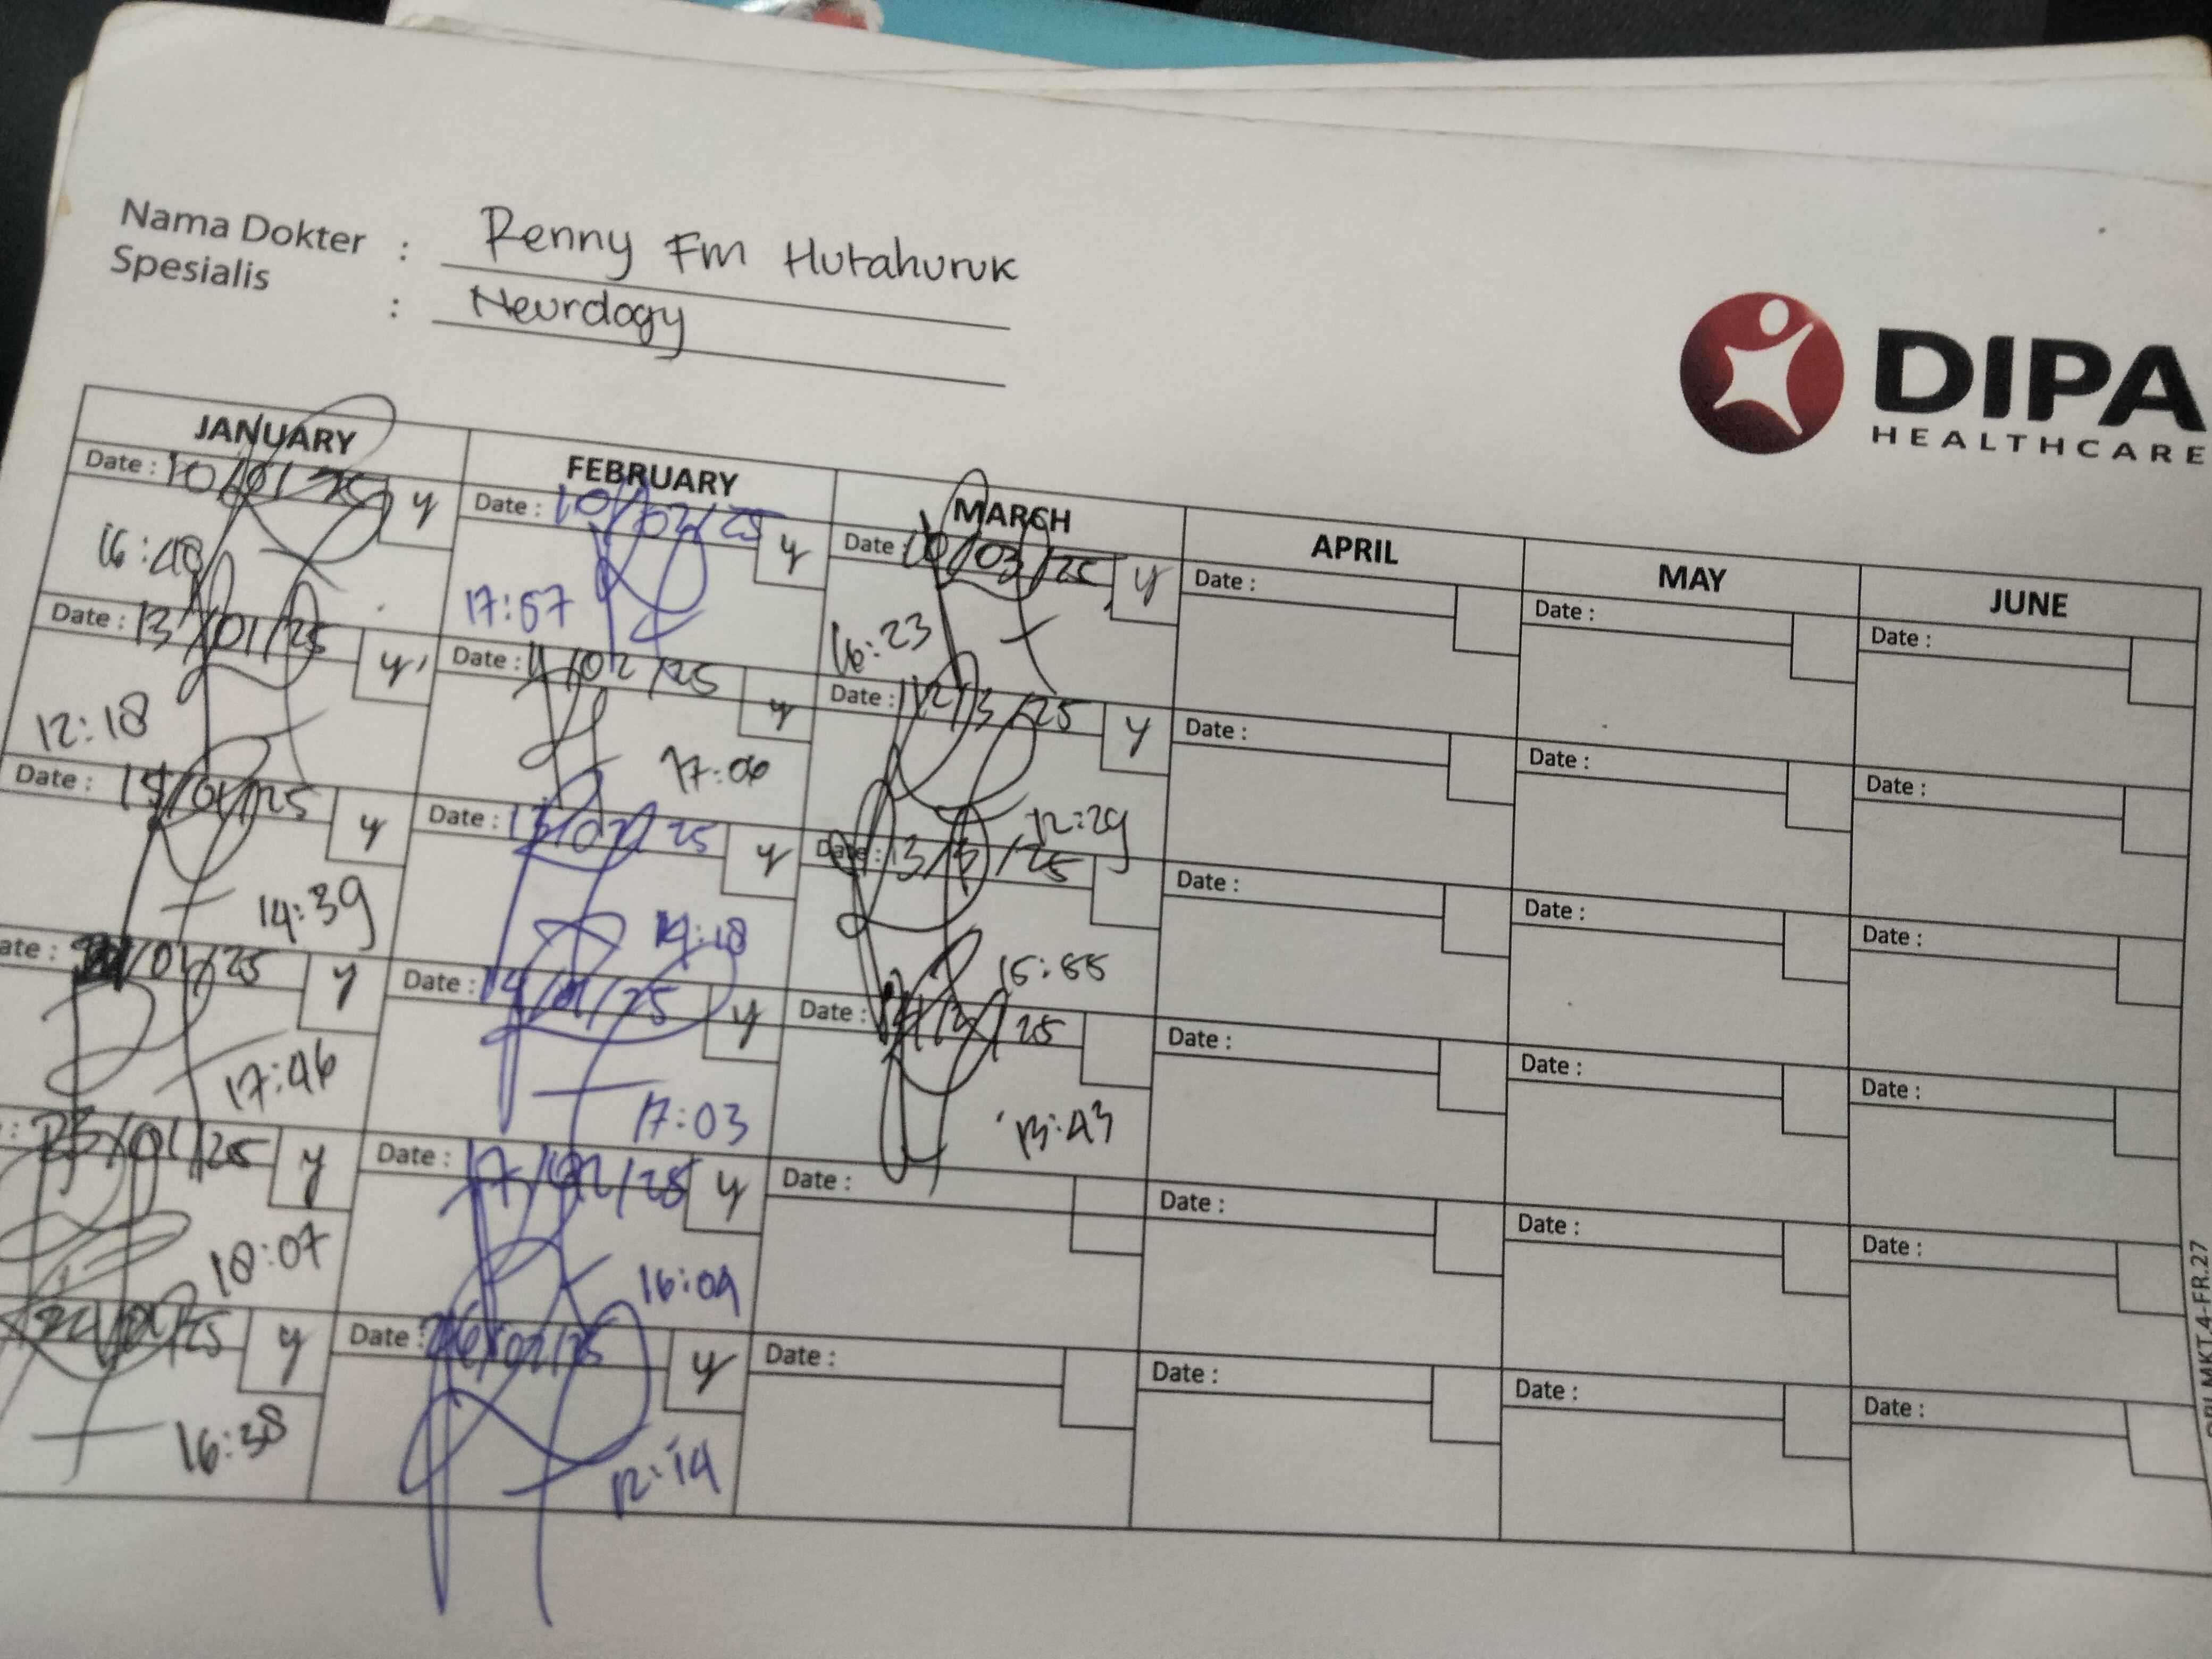 Nama Dokter : Renny Fm Hutahuruk
Spesialis : Neurology
DIPA
HEALTHCARE
JANUARY FEBRUARY MARCH APRIL MAY JUNE
Date : 10/01/25 y Date : 10/02/25 y Date : 10/03/25 y Date : Date : Date :
16:48 17:57 16:23
Date : 13/01/25 y Date : 11/02/25 y Date : 12/3/25 y Date : Date : Date :
12:18 17:06 12:29
Date : 15/01/25 y Date : 13/02/25 y Date : 13/3/25 Date : Date : Date :
14:39 14:18 15:55
/01/25 y Date : 14/01/25 y Date : 14/3/25 Date : Date : Date :
17:46 17:03 13:43
: 23/01/25 y Date : 17/02/25 y Date : Date : Date : Date :
18:07 16:09
y Date : 26/02/25 y Date : Date : Date : Date :
16:38 12:14
MKT.4-FR.27